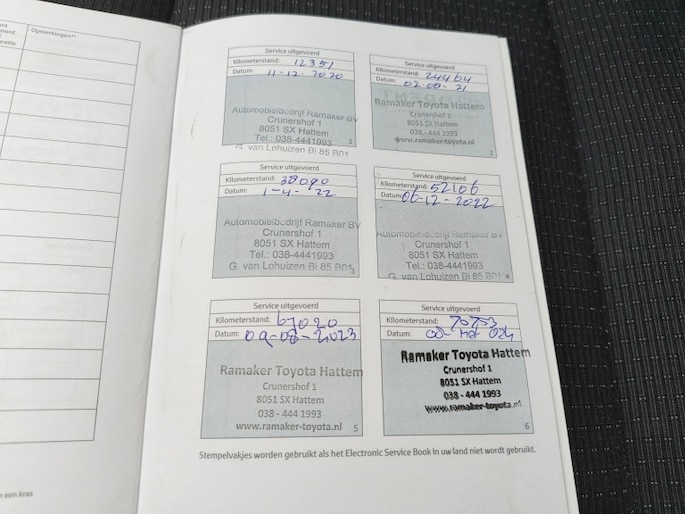 Opmerkingen
Service uitgevoerd
Kilometerstand: 12351
Datum: 11-12-2020
Automobielbedrijf Ramaker BV
Crunershof 1
8051 SX Hattem
Tel.: 038-4441993
G. van Lohuizen Bi 85 B01
1
Service uitgevoerd
Kilometerstand: 24464
Datum: 02-08-21
Ramaker Toyota Hattem
Crunershof 1
8051 SX Hattem
038 - 444 1993
www.ramaker-toyota.nl
2
Service uitgevoerd
Kilometerstand: 38090
Datum: 1-4-22
Automobielbedrijf Ramaker BV
Crunershof 1
8051 SX Hattem
Tel.: 038-4441993
G. van Lohuizen Bi 85 B01
3
Service uitgevoerd
Kilometerstand: 52106
Datum: 06-12-2022
Automobielbedrijf Ramaker BV
Crunershof 1
8051 SX Hattem
Tel.: 038-4441993
G. van Lohuizen Bi 85 B01
4
Service uitgevoerd
Kilometerstand: 67020
Datum: 09-08-2023
Ramaker Toyota Hattem
Crunershof 1
8051 SX Hattem
038 - 444 1993
www.ramaker-toyota.nl
5
Service uitgevoerd
Kilometerstand:
Datum:
Ramaker Toyota Hattem
Crunershof 1
8051 SX Hattem
038 - 444 1993
www.ramaker-toyota.nl
6
Stempelvakjes worden gebruikt als het Electronic Service Book in uw land niet wordt gebruikt.
een kras